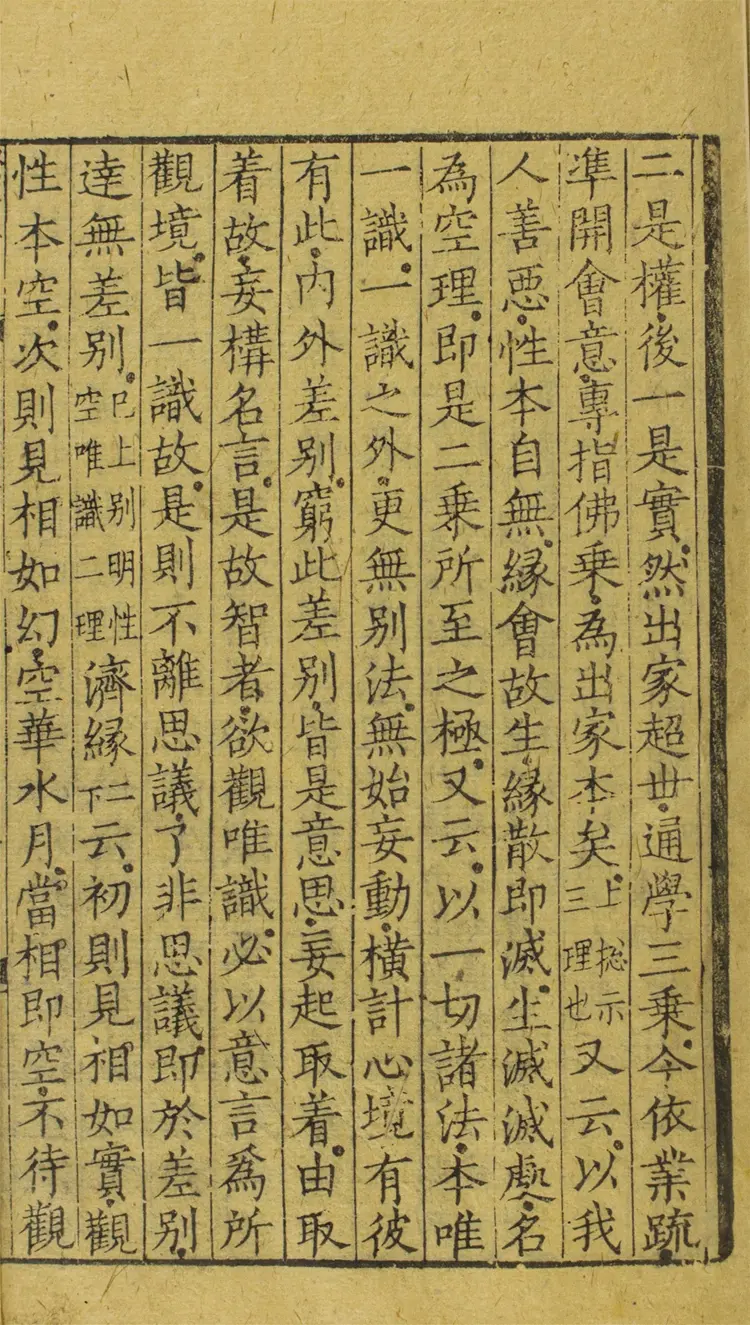 二是權後一是實然出家超世通學三乘今依業䟽
準開會意專指佛乘為出家本矣上捴示三理也又云以我
人善惡性本自無緣會故生緣散即滅生滅滅處名
為空理即是二乘所至之極又云以一切諸法本唯
一識一識之外更無別法無始妄動橫計心境有彼
有此內外差別窮此差別皆是意思妄起取着由取
着故妄構名言是故智者欲觀唯識必以意言爲所
觀境皆一識故是則不離思議了非思議即於差別
達無差別已上別明性空唯識二理濟緣二下云初則見相如實觀
性本空次則見相如幻空華水月當相即空不待觀